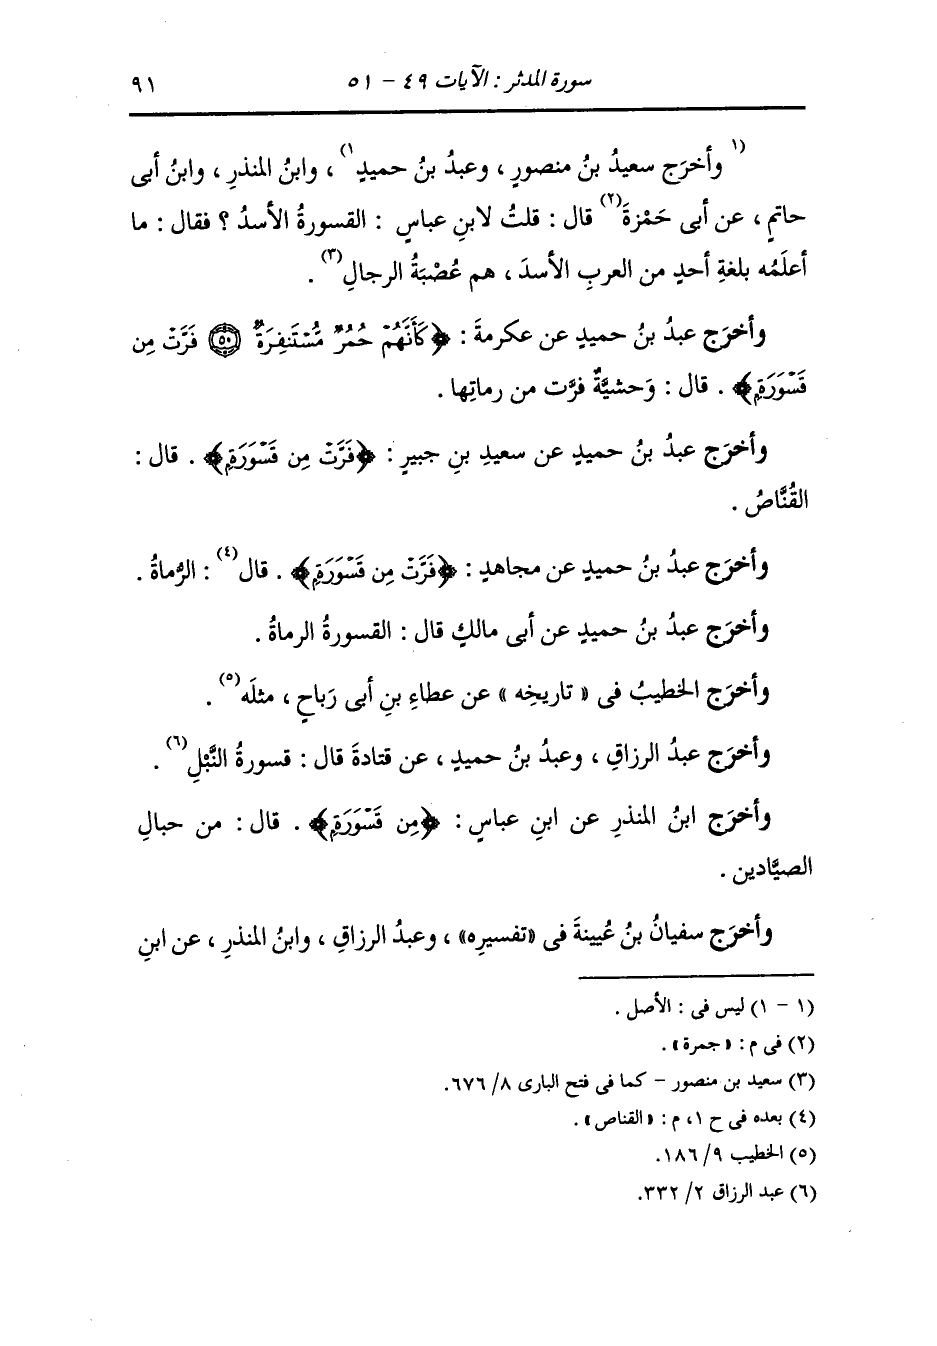 سورة المدثر : الآيات ٤٩ - ٥١ ٩١
(١ وأخرَج سعيدُ بنُ منصورٍ ، وعبدُ بنُ حميدٍ ١) ، وابنُ المنذرِ ، وابنُ أبى
حاتمٍ ، عن أبى حَمْزةَ (٢) قال : قلتُ لابنِ عباسٍ : القسورةُ الأسدُ ؟ فقال : ما
أعلَمُه بلغةِ أحدٍ من العربِ الأسدَ ، هم عُصْبَةُ الرجالِ (٣) .
وأخرَج عبدُ بنُ حميدٍ عن عكرمةَ : ﴿كَأَنَّهُمْ حُمُرٌ مُّسْتَنفِرَةٌ ۝٥٠ فَرَّتْ مِن
قَسْوَرَةٍ﴾ . قال : وَحشيَّةٌ فرَّت من رماتِها .
وأخرَج عبدُ بنُ حميدٍ عن سعيدِ بنِ جبيرٍ : ﴿فَرَّتْ مِن قَسْوَرَةٍ﴾ . قال :
القُنَّاصُ .
وأخرَج عبدُ بنُ حميدٍ عن مجاهدٍ : ﴿فَرَّتْ مِن قَسْوَرَةٍ﴾ . قال (٤) : الرُّماةُ .
وأخرَج عبدُ بنُ حميدٍ عن أبى مالكٍ قال : القسورةُ الرماةُ .
وأخرَج الخطيبُ فى « تاريخِه » عن عطاءِ بنِ أبى رَباحٍ ، مثلَه (٥) .
وأخرَج عبدُ الرزاقِ ، وعبدُ بنُ حميدٍ ، عن قتادةَ قال : قسورةُ النَّبْلِ (٦) .
وأخرَج ابنُ المنذرِ عن ابنِ عباسٍ : ﴿مِن قَسْوَرَةٍ﴾ . قال : من حبالِ
الصيَّادين .
وأخرَج سفيانُ بنُ عُيينةَ فى «تفسيرِه» ، وعبدُ الرزاقِ ، وابنُ المنذرِ ، عن ابنِ
(١ - ١) ليس فى : الأصل .
(٢) فى م : « جمرة» .
(٣) سعيد بن منصور - كما فى فتح البارى ٨/ ٦٧٦.
(٤) بعده فى ح ١، م : « القناص» .
(٥) الخطيب ٩/ ١٨٦.
(٦) عبد الرزاق ٢/ ٣٣٢.